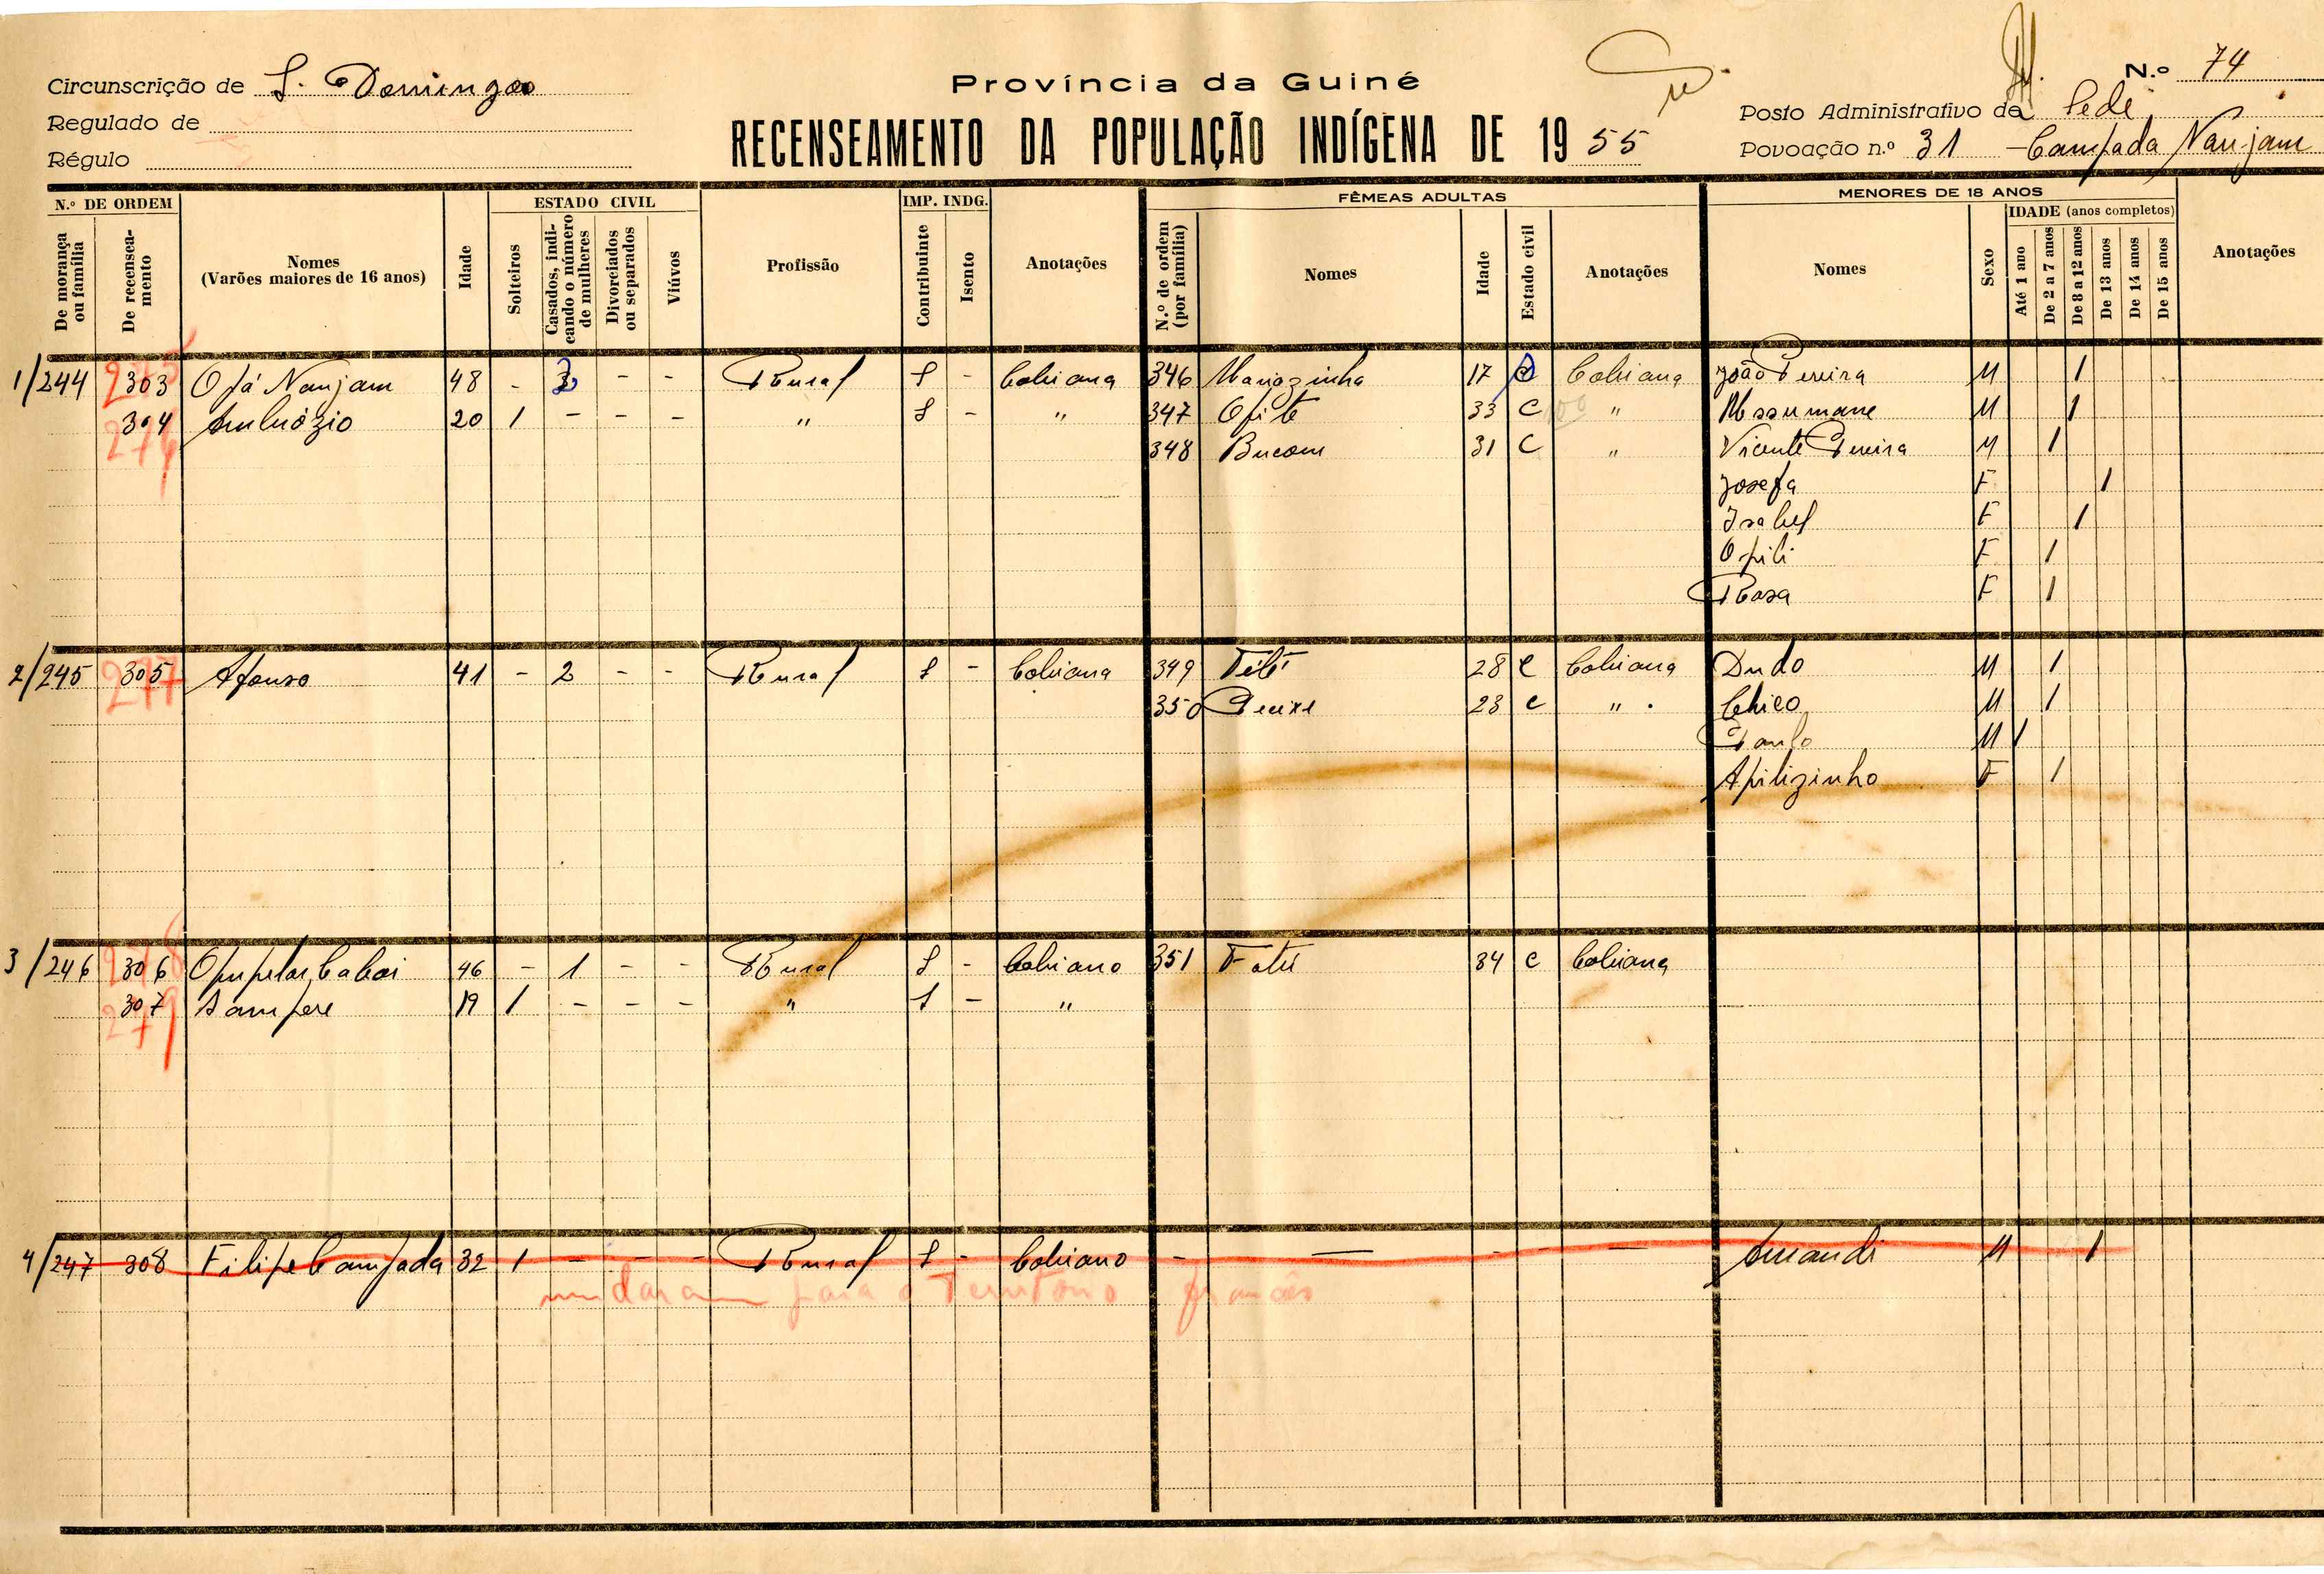 Circunscrição de S. Domingos
Regulado de
Régulo
Província da Guiné
RECENSEAMENTO DA POPULAÇÃO INDÍGENA DE 1955
N.º 74
Posto Administrativo da Sede
Povoação n.º 31 - Campada Nanjam
N.º DE ORDEM
De morança ou família
De recensea-mento
Nomes
(Varões maiores de 16 anos)
Idade
ESTADO CIVIL
Solteiros
Casados, indi-cando o número de mulheres
Divorciados ou separados
Viúvos
Profissão
IMP. INDG.
Contribuinte
Isento
Anotações
FÊMEAS ADULTAS
N.º de ordem (por família)
Nomes
Idade
Estado civil
Anotações
MENORES DE 18 ANOS
Nomes
Sexo
IDADE (anos completos)
Até 1 ano
De 2 a 7 anos
De 8 a 12 anos
De 13 anos
De 14 anos
De 15 anos
Anotações
1/244 303 Ofá Nanjam 48 - - - Rural 1 - Cobiana 346 Mariazinha 17 Cobiana João Pereira M 1
304 276 Ambrózio 20 1 - - - " 1 - " 347 Ofite 33 C " Assumane M 1
348 Bucom 31 C " Vicente Pereira M 1
Josefa F 1
Isabel F 1
Opili F 1
Rosa F 1
2/245 305 277 Afonso 41 - 2 - - Rural 1 - Cobiana 349 28 C Cobiana Dudo M 1
350 23 C " Chico M 1
Paulo M 1
Apilizinho F 1
3/246 306 278 46 - 1 - - Rural 1 - Cobiano 351 Fatú 34 C Cobiana
307 279 Sampere 19 1 - - - " 1 - "
4/247 308 Filipe Campada 32 1 - - - Rural 1 - Cobiano - — - - — Amandi M 1
mudaram para o Território francês